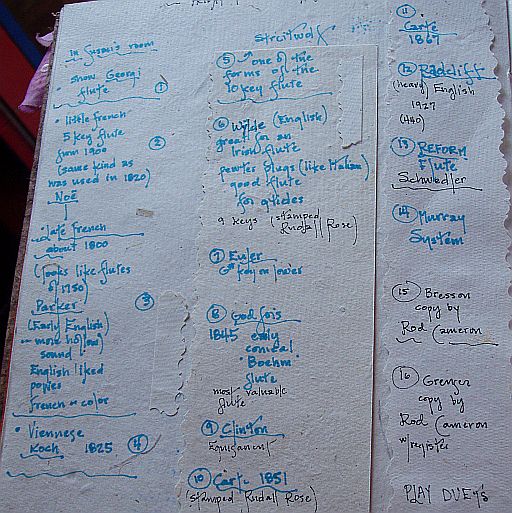 in Susan's room
• show Georgi
flute ①
• little french
5 key flute
from 1900 ②
(same kind as
was used in 1820)
Noë
late french
about 1800
(looks like flutes
of 1750)
Parker ③
(Early English)
more hollow
sound
English liked
ponies
french = color
• Viennese
Koch 1825 ④
Streitwolf
⑤ one of the
forms of the
10 key flute
⑥ Wylde (English)
great for an
Irish flute
pewter plugs (like Malian)
good flute
for glides
9 keys (stamped
Rudall Rose)
⑦ Euler
G# key on lower
⑧ Godfois
1845 early
conical
"Boehm"
flute
most valuable
flute
⑨ Clinton
Equisonant
⑩ Carte 1851
(stamped Rudall Rose)
11
Carte
1867
12 Radcliff
(heard) English
1927
(440)
13 REFORM
Flute
Schwedler
14 Murray
System
15 Bresson
copy by
Rod Cameron
16 Grenser
copy by
Rod Cameron
w/register
PLAY DUETS